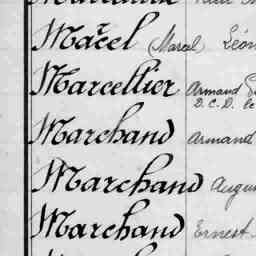 Marcel (Marcel Léon
Marcellier Armand
D.C.D. le
Marchand Armand
Marchand Augu
Marchand Ernest